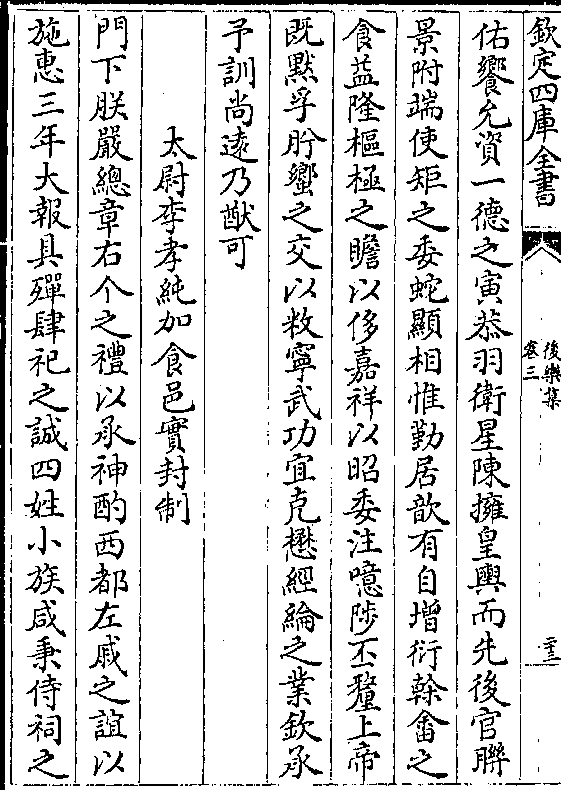 欽定四庫全書
後樂集
卷三
二十三
佑饗允資一德之寅恭羽衛星陳擁皇輿而先後官聯
景附端使矩之委蛇顯相惟勤居歆有自增衍榦畬之
食益隆樞極之瞻以侈嘉祥以昭委注噫陟丕釐上帝
既默孚肸蠁之交以敉寧武功宜克懋經綸之業欽承
予訓尚遠乃猷可
太尉李孝純加食邑實封制
門下朕嚴總章右个之禮以承神酌西都左戚之誼以
施惠三年大報具殫肆祀之誠四姓小族咸秉侍祠之